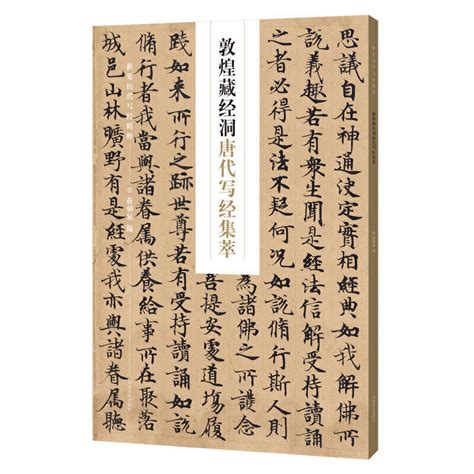 思議自在神通決定實相經典如我解佛所
說義趣若有眾生聞是經法信解受持讀誦
之者必得是法不疑何況如說脩行斯人
敦煌藏经洞唐代写经集萃
為諸佛之
菩提安處道場履
踐如來所行之跡世尊若有受持讀誦如說
脩行者我當與諸眷屬供養給事所在聚落
城邑山林曠野有是經處我亦與諸眷屬聽